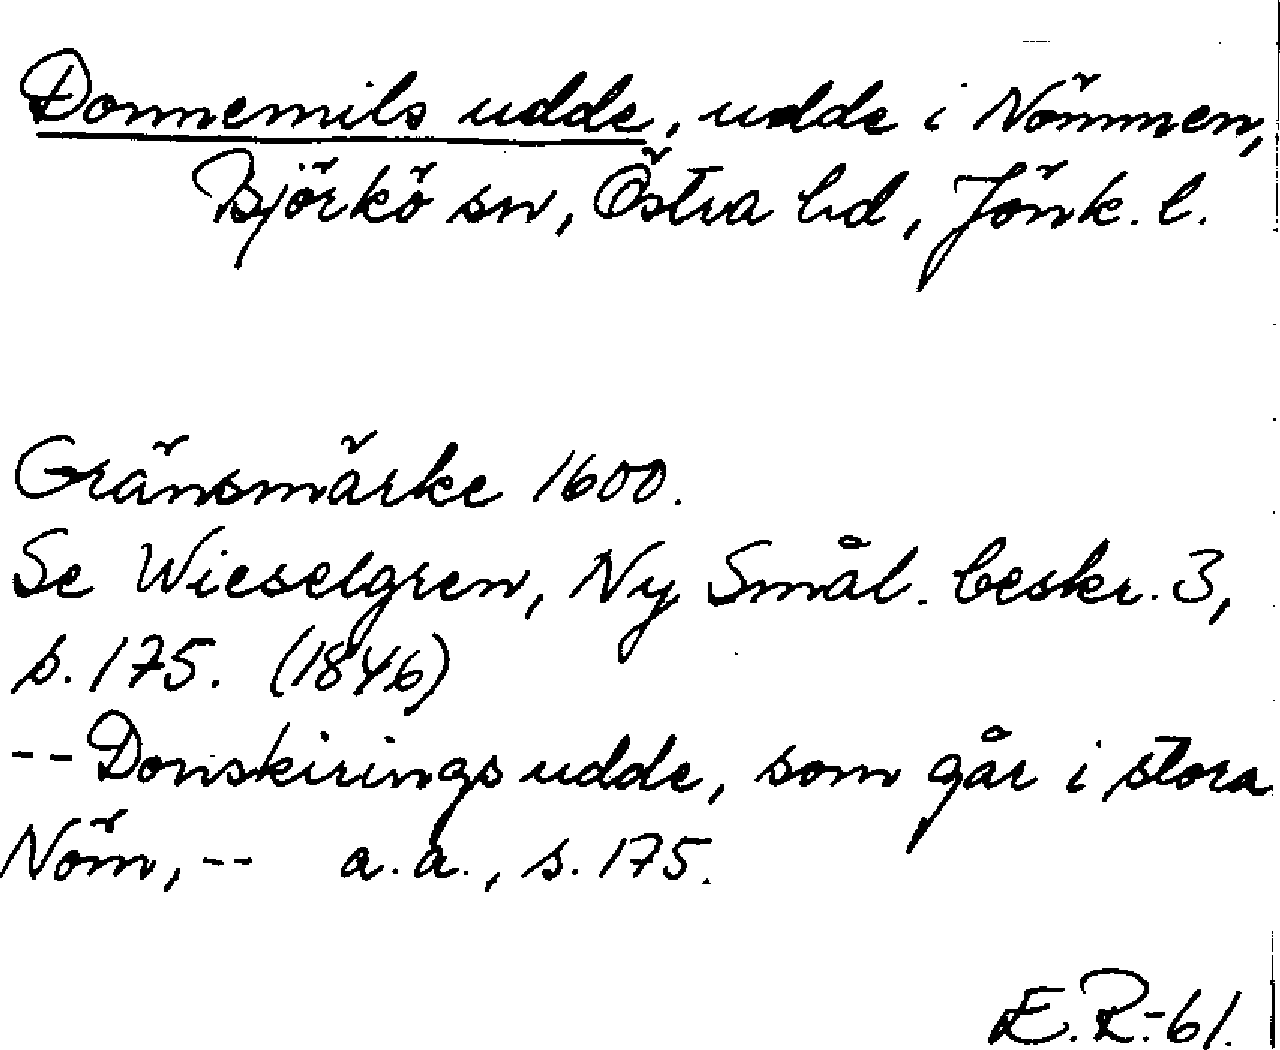 Donnemils udde, udde i Nömmen,
Björkö sn, Östra hd, Jönk. l.
Gränsmärke 1600.
Se Wieselgren, Ny Smål. beskr. 3,
s. 175. (1846)
-- Donskirings udde, som går i stora
Nöm, -- a.a., s. 175.
E.R.-61.